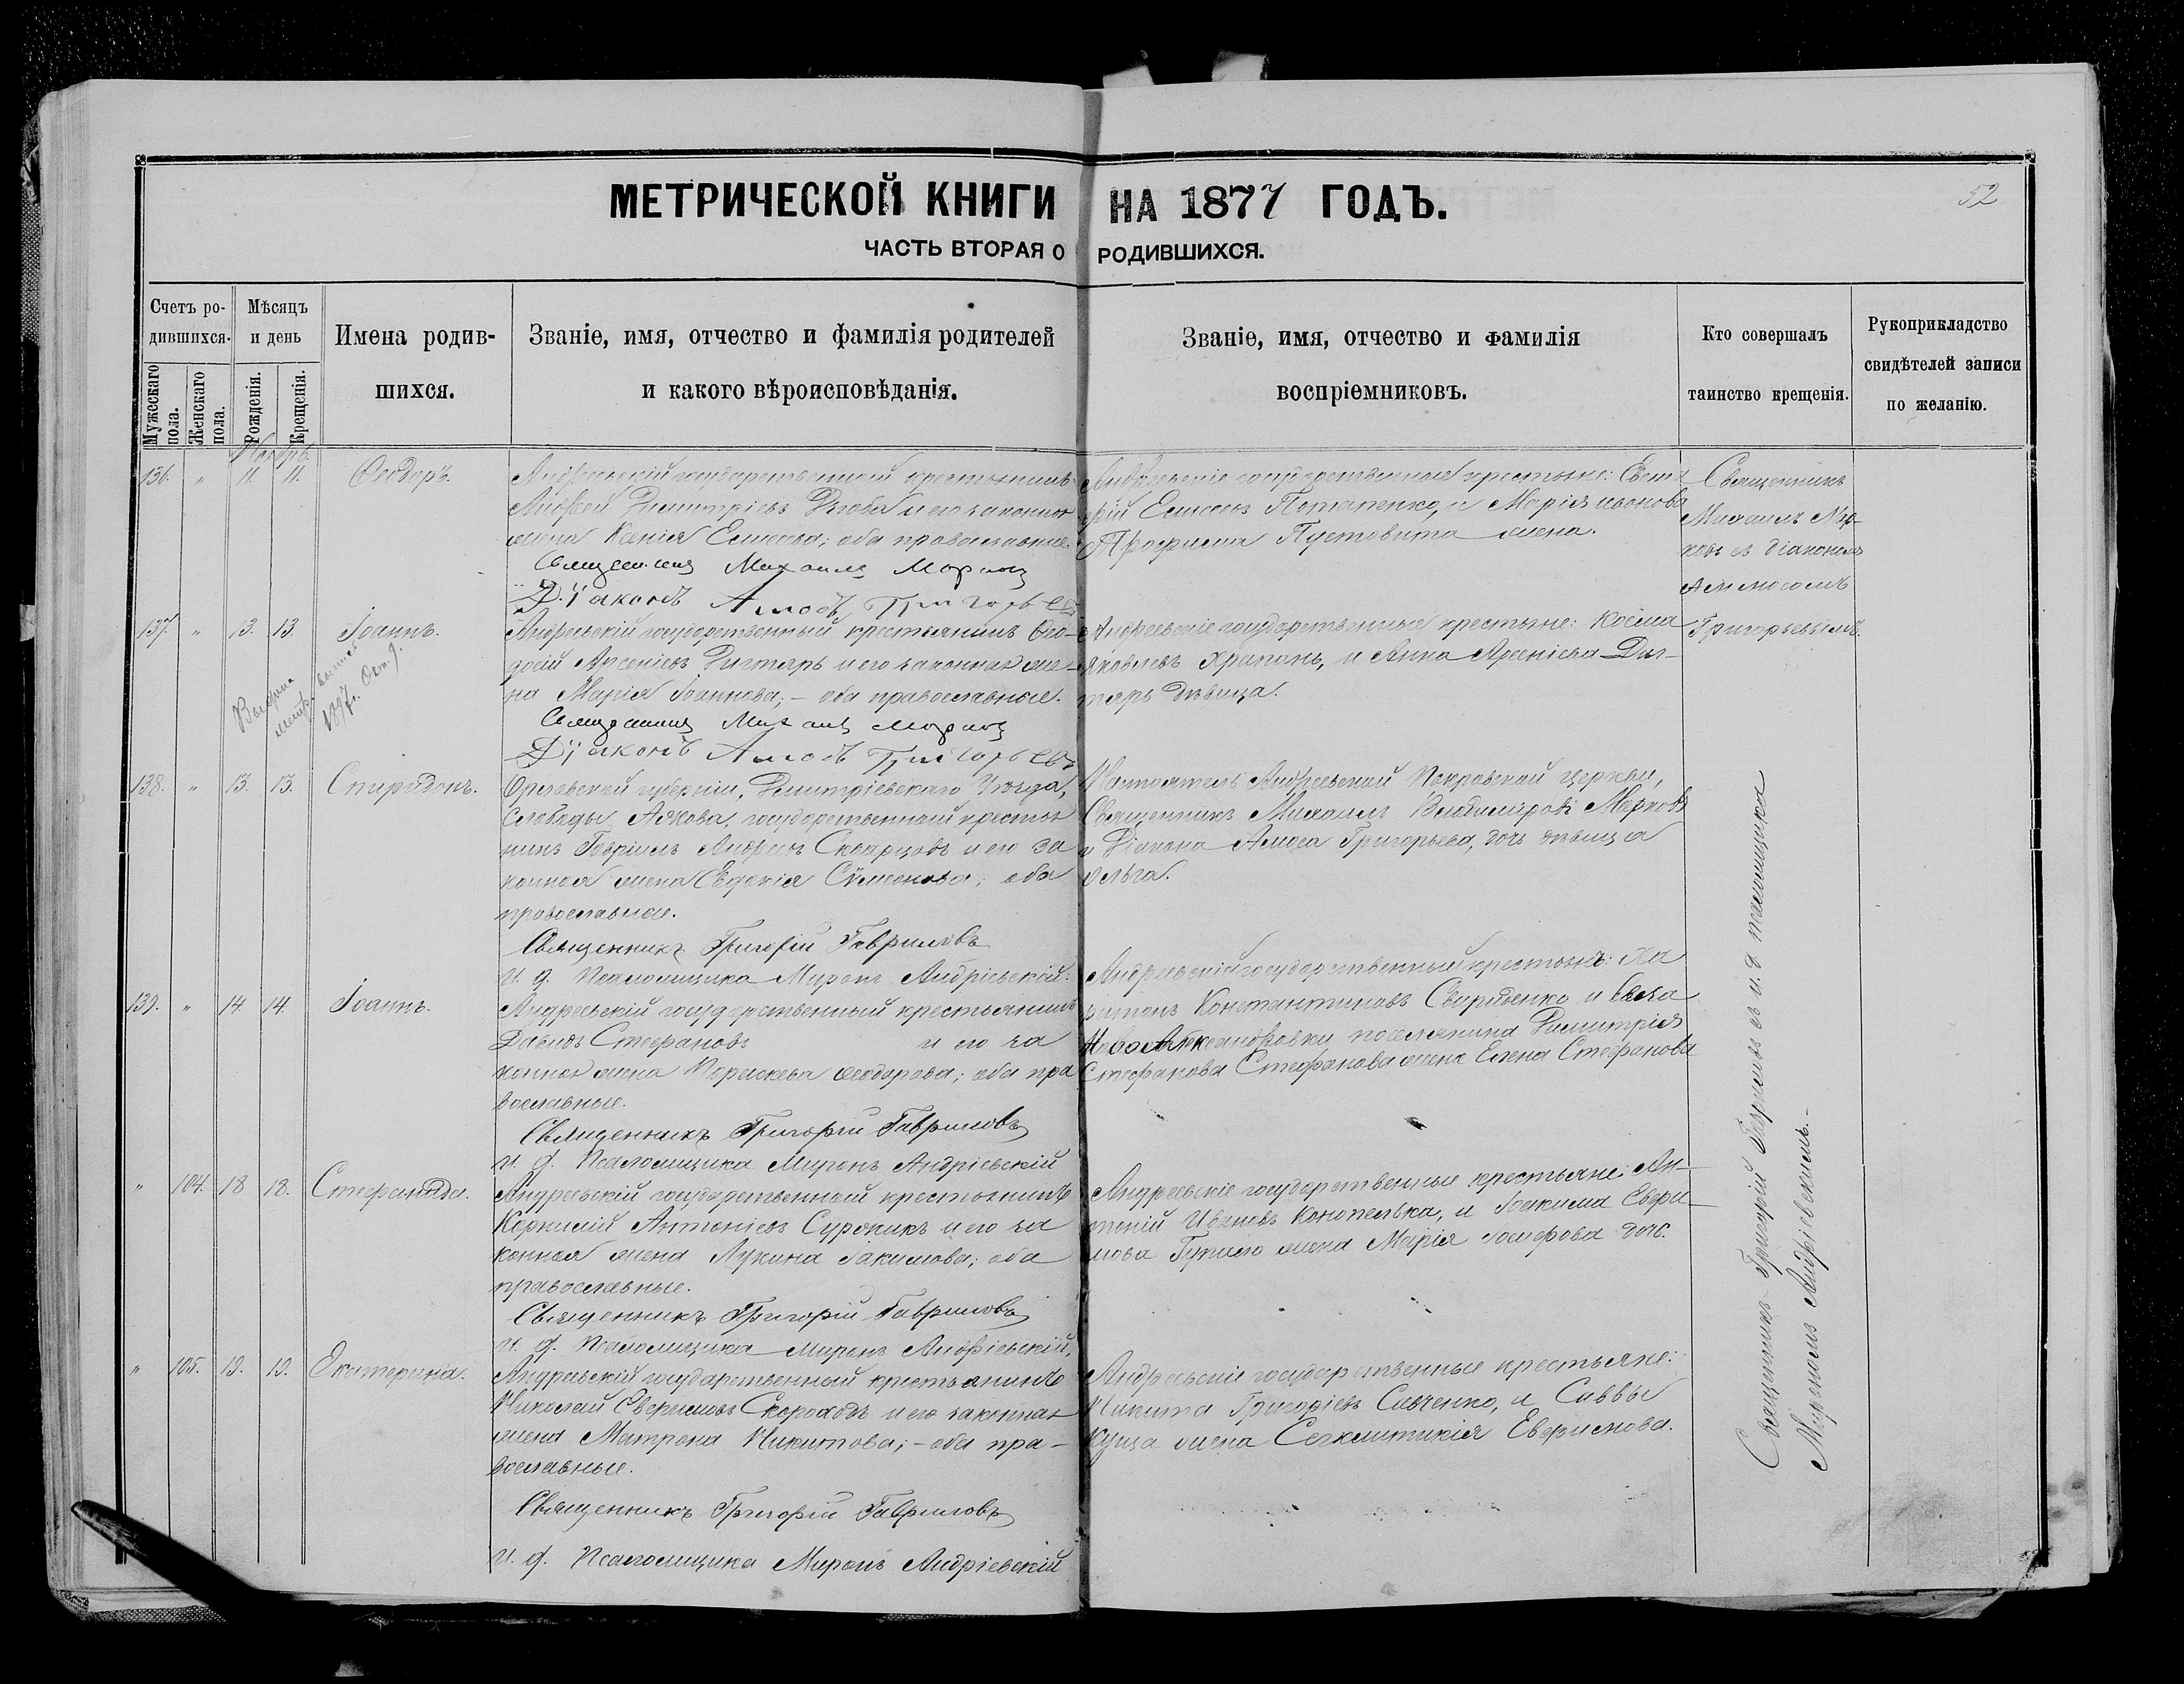 МЕТРИЧЕСКОЙ КНИГИ НА 1877 ГОДЪ.
52
ЧАСТЬ ВТОРАЯ О РОДИВШИХСЯ.
Счетъ ро-
дившихся.
Мужескаго пола.
Женскаго пола.
Мѣсяцъ
и день
Рожденія.
Крещенія.
Имена родив-
шихся.
Званіе, имя, отчество и фамилія родителей
и какого вѣроисповѣданія.
Званіе, имя, отчество и фамилія
воспріемниковъ.
Кто совершалъ
таинство крещенія.
Рукоприкладство
свидѣтелей записи
по желанію.
Ноябрь.
136. " 11. 11. Ѳеодоръ.
Андреевскій государственный крестьянинъ
Димитріевъ и его законная
жена Ксенія Елисеева; оба православные.
Священникъ Михаилъ Марковъ
Діаконъ Амосъ Григорьевъ
Андреевскіе государственные крестьяне:
Елисеевъ Потапенко, и Марія
Трофима Пустовита жена.
Священникъ
Михаилъ Мар-
ковъ съ діакономъ
Амосомъ
Григорьевымъ.
137. " 13. 13. Іоаннъ.
Выдана
метр. выпись
1897 г. Окт. 9.
Андреевскій государственный крестьянинъ Ѳео-
досій Арсеніевъ Дигтярь и его законная же-
на Марія Іоаннова, – оба православные.
Священникъ Михаилъ Марковъ
Діаконъ Амосъ Григорьевъ
Андреевскіе государственные крестьяне: Косма
Яковлевъ Храпонь, и Анна Арсеніева Диг-
тярь дѣвица.
138. " 13. 13. Спиридонъ.
Орловской губерніи, Димитріевскаго Уѣзда,
Слободы государственный крестья
нинъ Гавріилъ Андреевъ Скварцовъ и его за
конная жена Евдокія Сѵмеонова; оба
православные.
Священникъ Григорій Гавриловъ
И. д. Псаломщика Миронъ Андріевскій.
Настоятель Андреевской Покровской церкви,
Священникъ Михаилъ Владиміровъ Марковъ
и Діакона Амоса Григорьева, дочь дѣвица
Ольга.
139. " 14. 14. Іоаннъ.
Андреевскій государственный крестьянинъ
Давидъ Стефановъ и его за
конная жена Параскева Ѳеодорова; оба пра
вославные.
Священникъ Григорій Гавриловъ
И. д. Псаломщика Миронъ Андріевскій
Андреевскій государственный крестьян: Ха
ритонъ Константиновъ Свириденко и села
Новоалександровки поселянина Димитрія
Стефанова Стефанова жена Елена Стефанова
" 104. 18 18. Стефанида.
Андреевскій государственный крестьянинъ
Корнилій Антоніевъ и его за
конная жена Лукина Іакимова; оба
православные.
Священникъ Григорій Гавриловъ
И. д. Псаломщика Миронъ Андріевскій,
Андреевскіе государственные крестьяне: Ан-
тоній Ивановъ Конопелька, и Іоакима Евфи-
мова жена Марія Іосифова дочь.
" 105. 19. 19. Екатерина.
Андреевскій государственный крестьянинъ
Николай Евфимовъ Скороходъ и его законная
жена Матрона Никитова; – оба пра-
вославные.
Священникъ Григорій Гавриловъ
И. д. Псаломщика Миронъ Андріевскій
Андреевскіе государственные крестьяне:
Никита Григоріевъ Савченко, и Саввы
Куща жена Евфимова.
Священникъ Григорій Гавриловъ съ и. д. псаломщика
Мирономъ Андріевскимъ.–